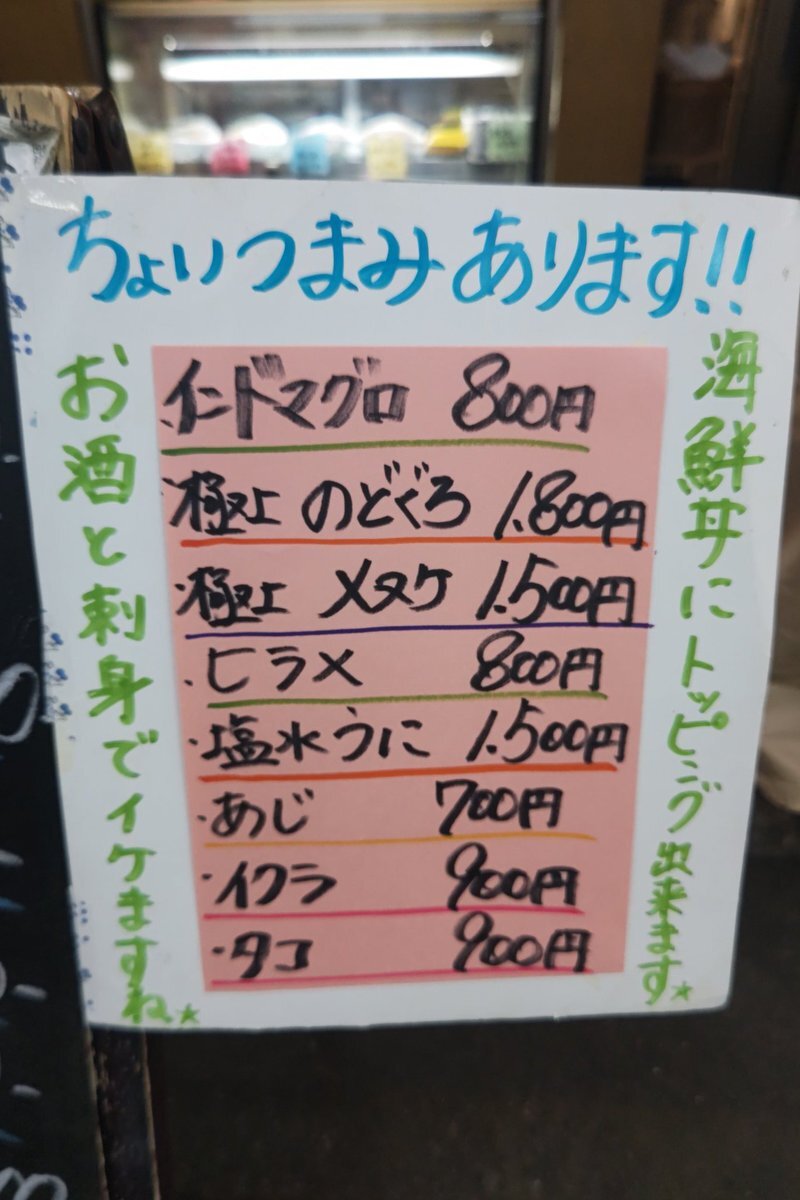 ちょいつまみあります!!
海鮮丼にトッピング出来ます☆
・インドマグロ 800円
・極上 のどぐろ 1.800円
・極上 メヌケ 1.500円
・ヒラメ 800円
・塩水うに 1.500円
・あじ 700円
・イクラ 900円
・タコ 900円
お酒と刺身でイケますね☆